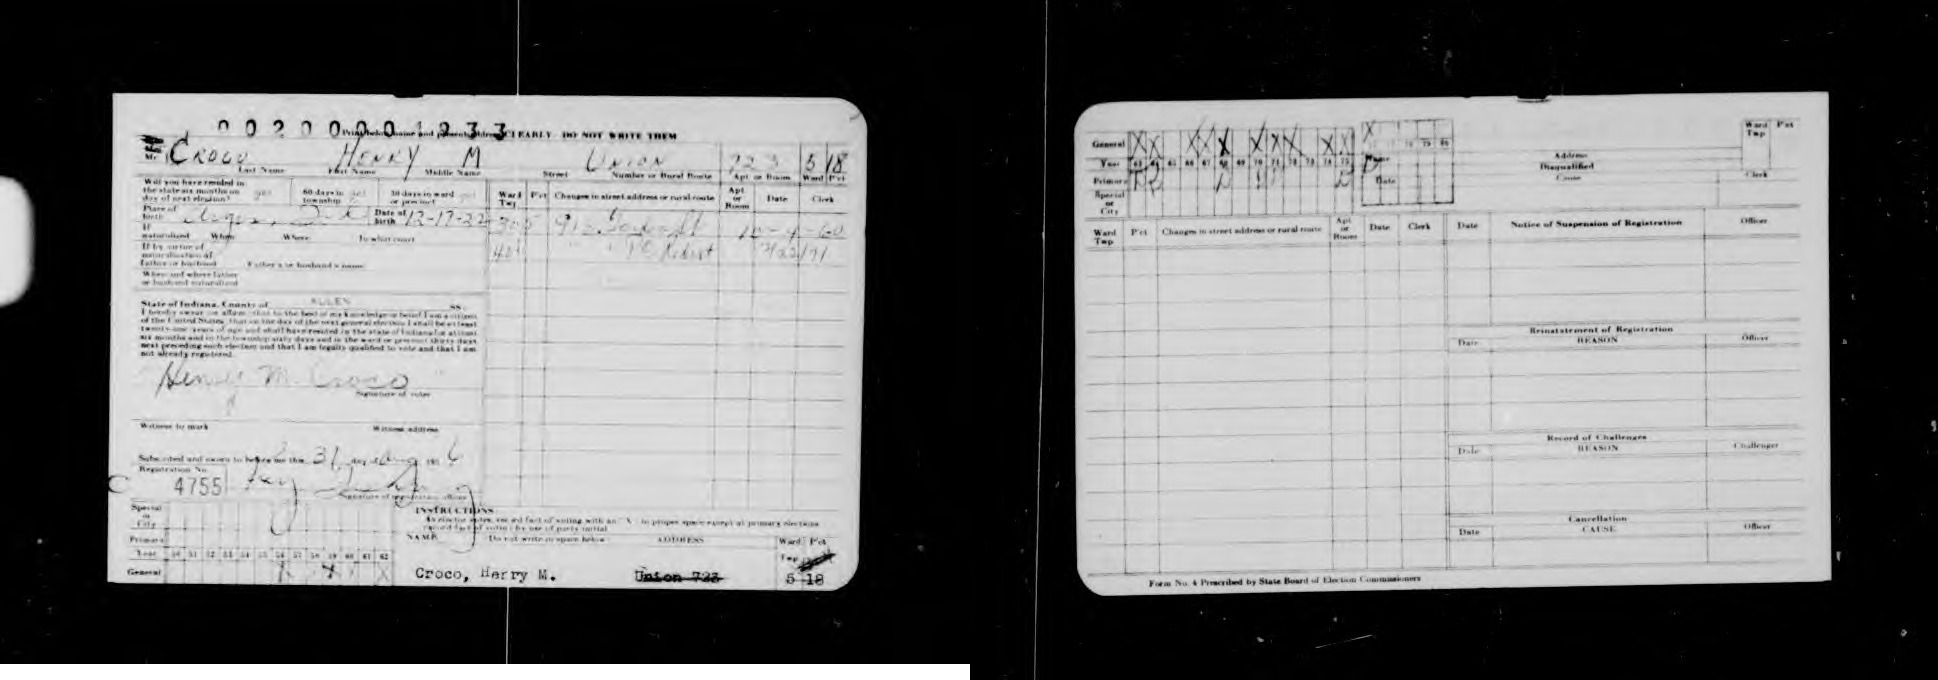 00200001233
Print below name and present address CLEARLY. DO NOT WRITE THEM
Mr. CROCO HENRY M UNION 723 5 18
Last Name First Name Middle Name Street Number or Rural Route Apt or Room Ward Pct
Will you have resided in
the state six months on
day of next election? yes 60 days in township 30 days in ward or precinct
Ward Twp Pct Changes in street address or rural route Apt or Room Date Clerk
Place of birth Argos, Ind Date of birth 12-17-22
305 912 10-4-60
If naturalized When Where In what court
401 " " 12/22/71
If by virtue of
naturalization of
father or husband Father's or husband's name
When and where father
or husband naturalized
State of Indiana, County of ALLEN SS:
I hereby swear or affirm that to the best of my knowledge or belief I am a citizen
of the United States, that on the day of the next general election I shall be at least
twenty-one years of age and shall have resided in the state of Indiana for at least
six months and in the township sixty days and in the ward or precinct thirty days
next preceding such election and that I am legally qualified to vote and that I am
not already registered.
Henry M. Croco
Signature of voter
Witness to mark Witness address
Subscribed and sworn to before me this 31 day of Aug 195 6
Registration No.
C 4755
Signature of registration officer
Special
or
City
Primary
Year 50 51 52 53 54 55 56 57 58 59 60 61 62
General X X X
INSTRUCTIONS
As elector votes, record fact of voting with an "X" in proper space except at primary elections
record fact of voting by use of party initial
NAME Do not write in space below ADDRESS Ward Pct
Twp
Croco, Henry M. Union 723 5 18
General X X X X X X X X X X X
Year 63 64 65 66 67 68 69 70 71 72 73 74 75
Primary
Special
or
City
79 80
Date
Address
Disqualified
Cause
Ward Twp Pct
Clerk
Ward Twp Pct Changes in street address or rural route Apt or Room Date Clerk
Date Notice of Suspension of Registration Officer
Reinstatement of Registration
Date REASON Officer
Record of Challenges
Date REASON Challenger
Cancellation
Date CAUSE Officer
Form No. 4 Prescribed by State Board of Election Commissioners